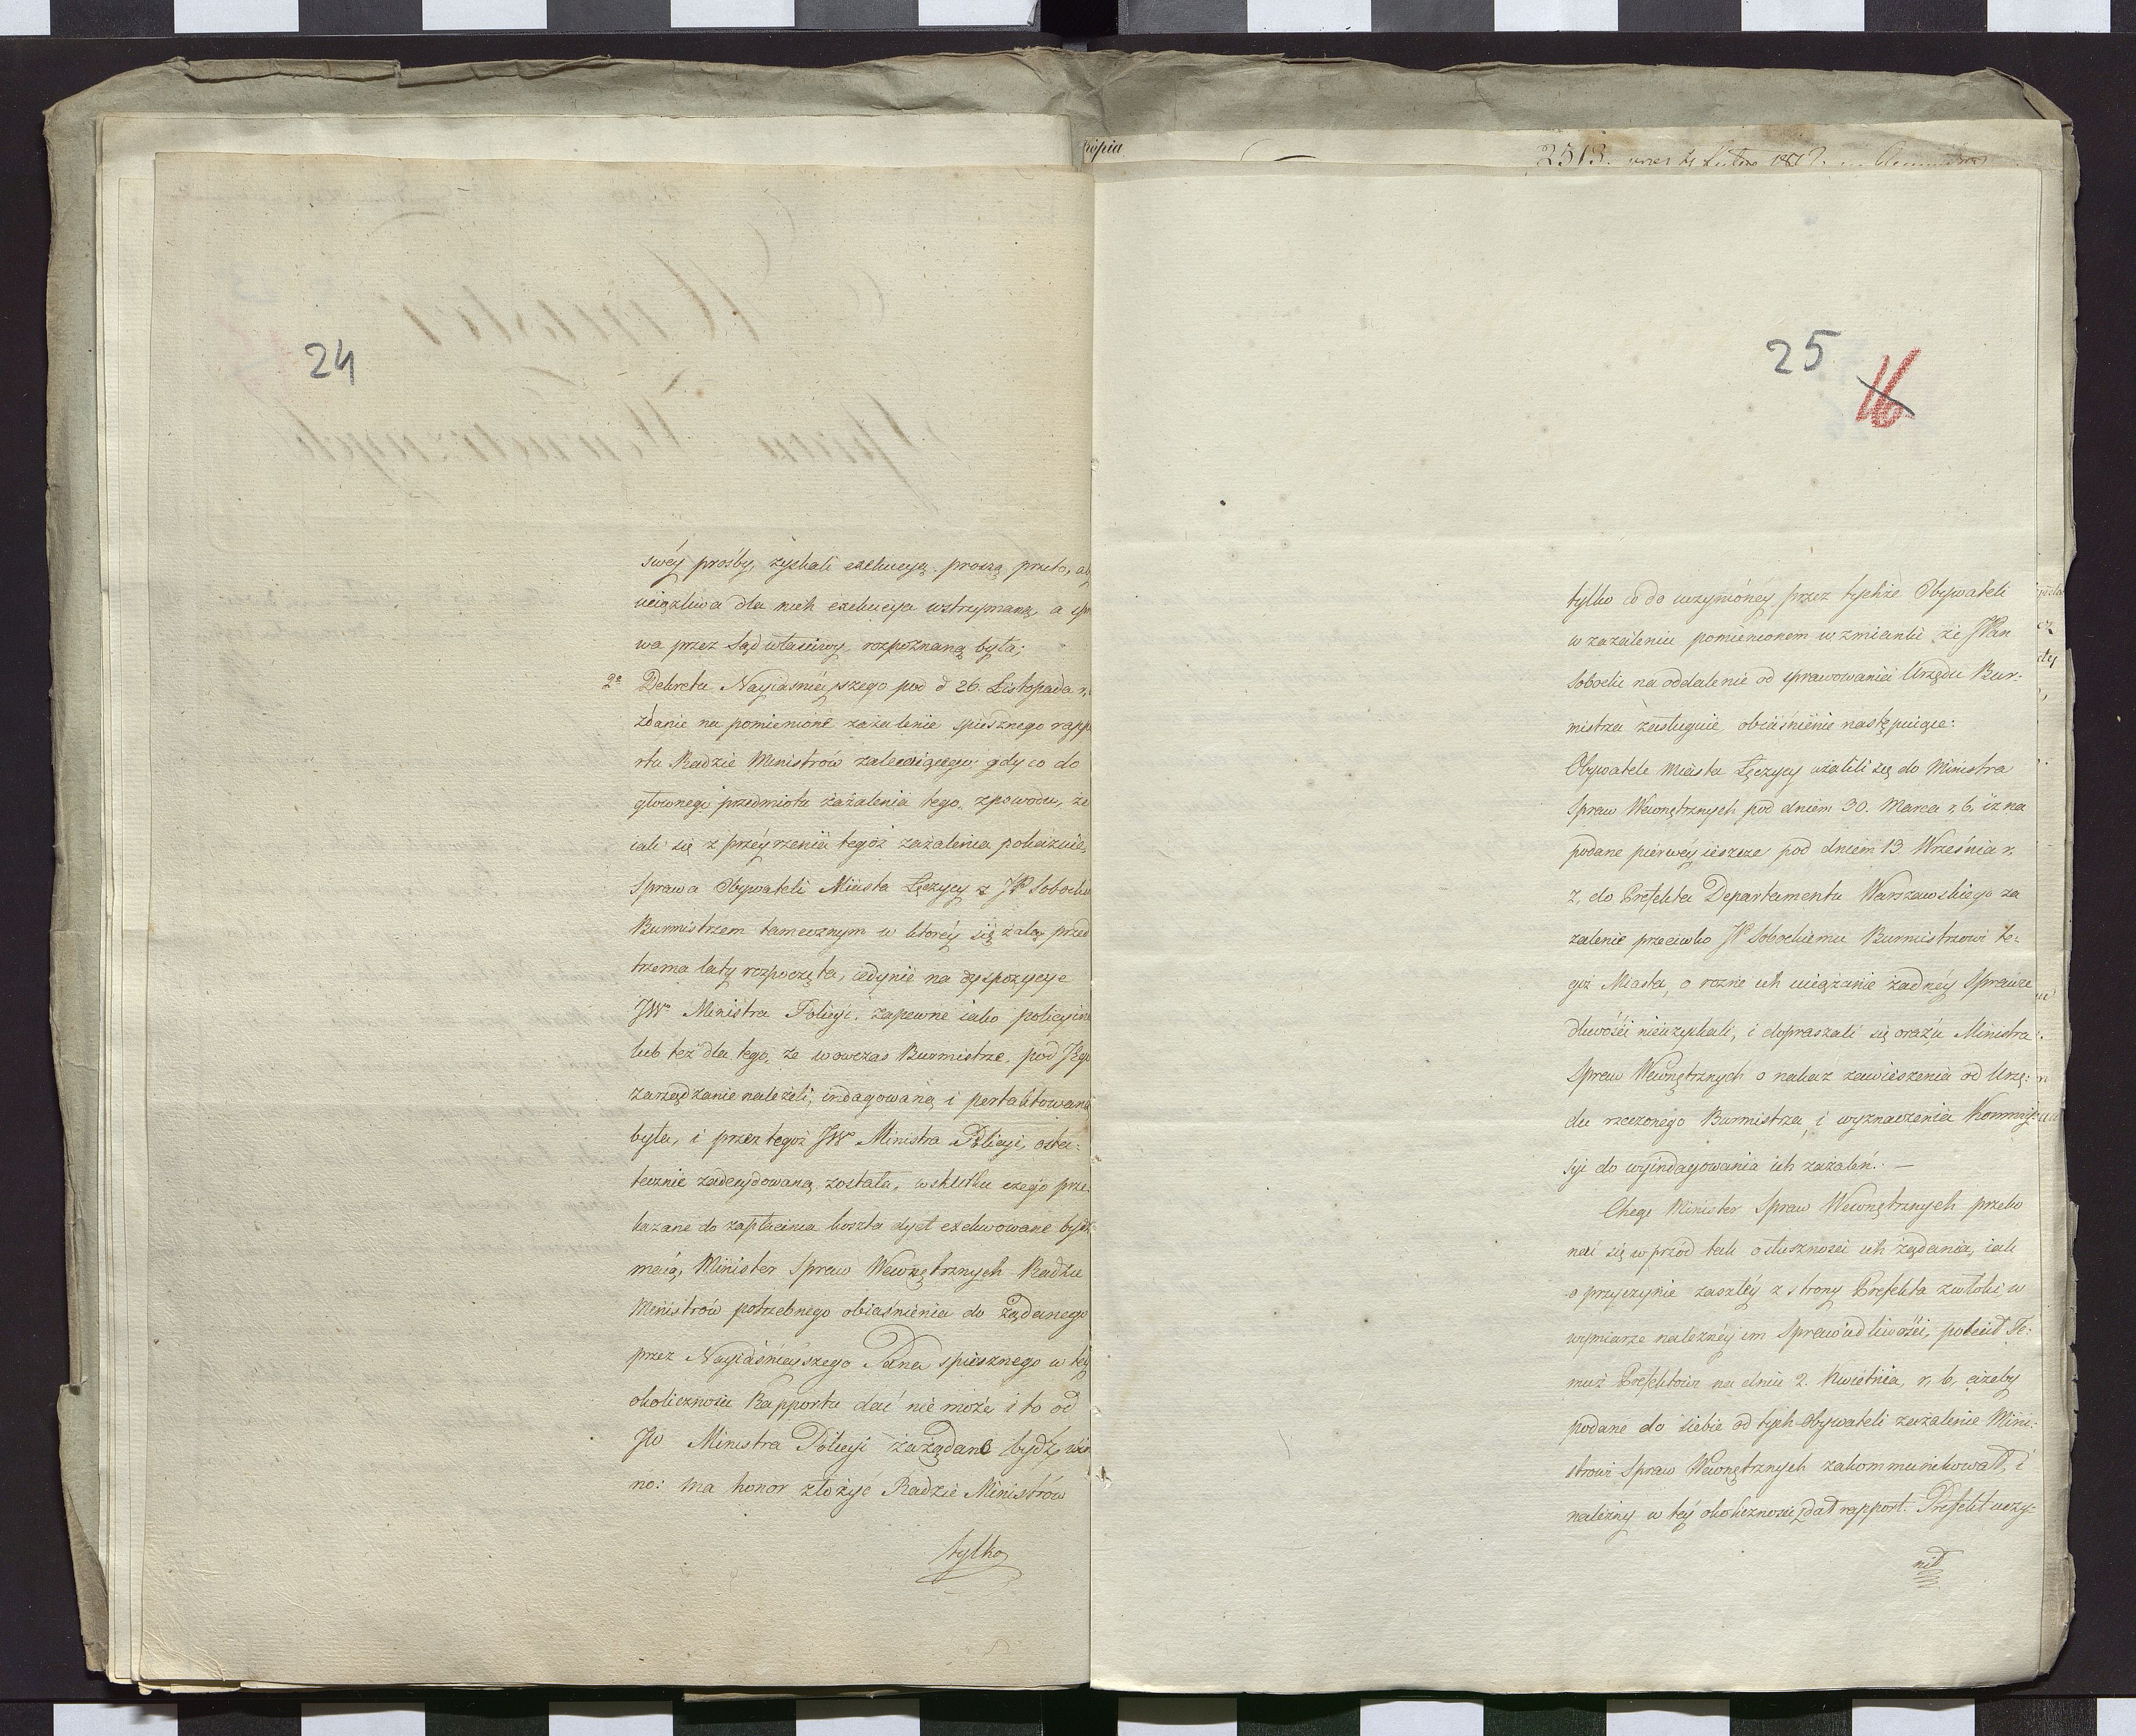 24
swéy prośby, zyskali exekucyą. proszą przeto, ab
uciążliwa dla nich exekucya wstrzymaną, a spra
wa przez Sąd właściwy rozpoznaną była;
2o Dekretu Nayiaśnieyszego pod d 26. Listopada r.
zdanie na pomienione zażalenie spiesznego rappo
rtu Radzie Ministrów zalecaiącego; gdy co do
głownego przedmiotu zażalenia tego, z powodu, że
iak się z przeyrzenia tegoż zażalenia pokazuie,
Sprawa Obywateli Miasta Łęczycy z JP Sobockim
Burmistrzem tamecznym w ktorey się żalą, przed
trzema laty rozpoczęta, iedynie na dyspozycye
JW Ministra Policyi, zapewne iako policyina
lub też dla tego, że wowczas Burmistrze, pod Jego
zarządzanie należeli, indagowaną i pertraktowaną
była, i przez tegoż JW Ministra Policyi, osta-
tecznie zadecydowaną została, w skutku czego prze-
kazane do zapłacenia koszta dyet exekwowane bydź
maią, Minister Spraw Wewnętrznych Radzie
Ministrów potrzebnego obiaśnienia do żądanego
przez Nayiaśnieyszego Pana spiesznego w tey
okoliczności Rapportu dać nie może i to od
JW Ministra Policyi zażądane bydź win
no: ma honor złożyć Radzie Ministrów
tylko
kopia
2513.
25
16
tylko co do uczynióney przez tychże Obywateli
w zażaleniu pomienionem wzmianki że JPan
Sobocki na oddalenie od sprawowania Urzędu Bur-
mistrza zasługuie, obiaśnienie następuiące:
Obywatele Miasta Łęczycy użalili się do Ministra
Spraw Wewnętrznych pod dniem 30. Marca r, b, iż na
podane pierwéy ieszcze pod dniem 13. Września r,
z, do Prefekta Departamentu Warszawskiego za
żalenie przeciwko JP Sobockiemu Burmistrzowi te-
goż Miasta, o rożne ich uciążanie żadnéy Sprawie
dliwości nieuzyskali, i dopraszali się oraz u Ministra
Spraw Wewnętrznych o nakaz zawieszenia od Urzę-
du rzeczonego Burmistrza, i wyznaczenia Kommis-
syi do wyindagowania ich zażaleń. —
Chcąc Minister Spraw Wewnętrznych przeko
nać się wprzód tak o słuszności ich żądania, iak
o przyczynie zaszłéy z strony Prefekta zwłoki, w
wymiarze należnéy im Sprawiedliwości, polecił Te-
muż Prefektowi na dniu 2. Kwietnia, r, b, ażeby
podane do siebie od tych Obywateli zażalenie Mini-
strowi Spraw Wewnętrznych zakommunikował, i
należny w téy okoliczności zdał rapport. Prefekt uczy-
nił